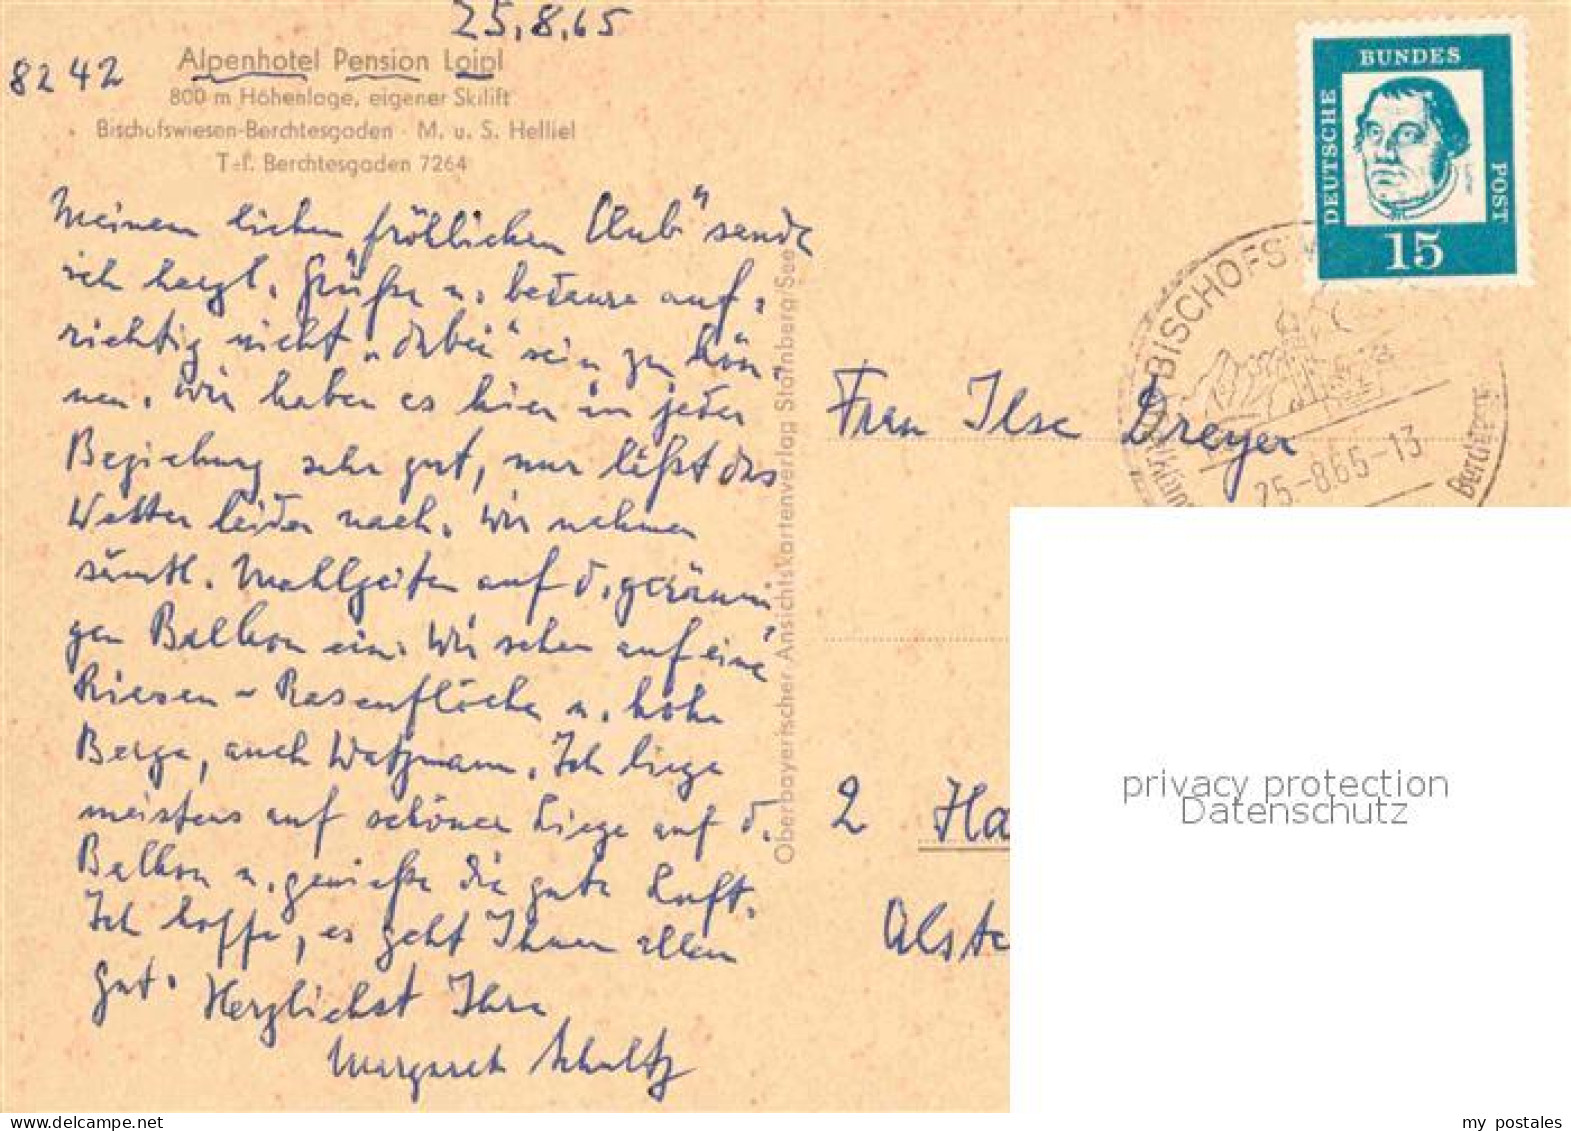 25.8.65
8242
Alpenhotel Pension Loipl
800 m Höhenlage, eigener Skilift
Bischofswiesen-Berchtesgaden · M. u. S. Helliel
Tel. Berchtesgaden 7264
Meinem lieben „fröhlichen Club" sende
ich herzl. Grüße u. bedaure auf-
richtig nicht „dabei" sein zu kön-
nen. Wir haben es hier in jeder
Beziehung sehr gut, nur läßt das
Wetter leider nach. Wir nehmen
sämtl. Mahlzeiten auf d. geräumi-
gen Balkon ein. Wir sehen auf eine
Riesen-Rasenfläche u. hohe
Berge, auch Watzmann. Ich liege
meistens auf schöner Liege auf d.
Balkon u. genieße die gute Luft.
Ich hoffe, es geht Ihnen allen
gut. Herzlichst Ihre
Margarete Schultz
Oberbayerischer Ansichtskartenverlag Starnberg/See
DEUTSCHE
BUNDES
POST
15
BISCHOFSW
25-8.65-13
Frau Ilse Dreyer
2 Ha
Alste
privacy protection
Datenschutz
my postales